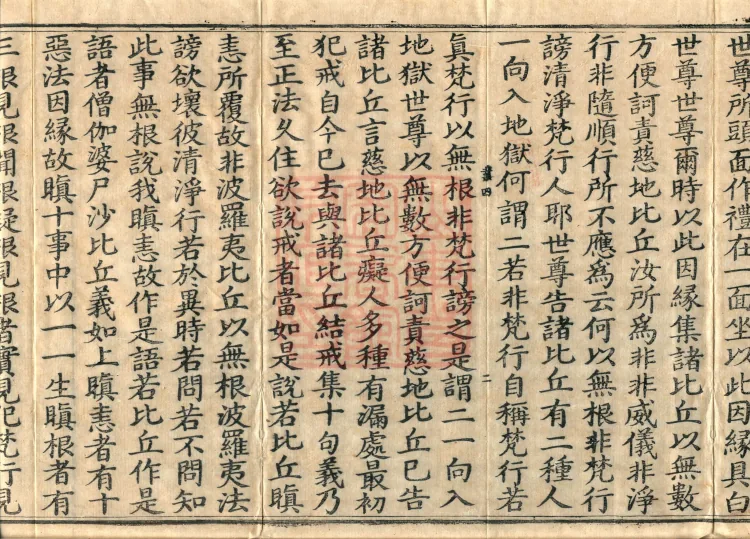 世尊所頭面作禮在一面坐以此因緣具白
世尊世尊爾時以此因緣集諸比丘以無數
方便訶責慈地比丘汝所為非非威儀非淨
行非隨順行所不應為云何以無根非梵行
謗清淨梵行人耶世尊告諸比丘有二種人
一向入地獄何謂二若非梵行自稱梵行若
眞梵行以無根非梵行謗之是謂二一向入
地獄世尊以無數方便訶責慈地比丘已告
諸比丘言慈地比丘癡人多種有漏處最初
犯戒自今已去與諸比丘結戒集十句義乃
至正法久住欲說戒者當如是說若比丘瞋
恚所覆故非波羅夷比丘以無根波羅夷法
謗欲壞彼清淨行若於異時若問若不問知
此事無根說我瞋恚故作是語若比丘作是
語者僧伽婆尸沙比丘義如上瞋恚者有十
惡法因緣故瞋十事中以一一生瞋根者有
三根見根聞根疑根見根者實見犯梵行見